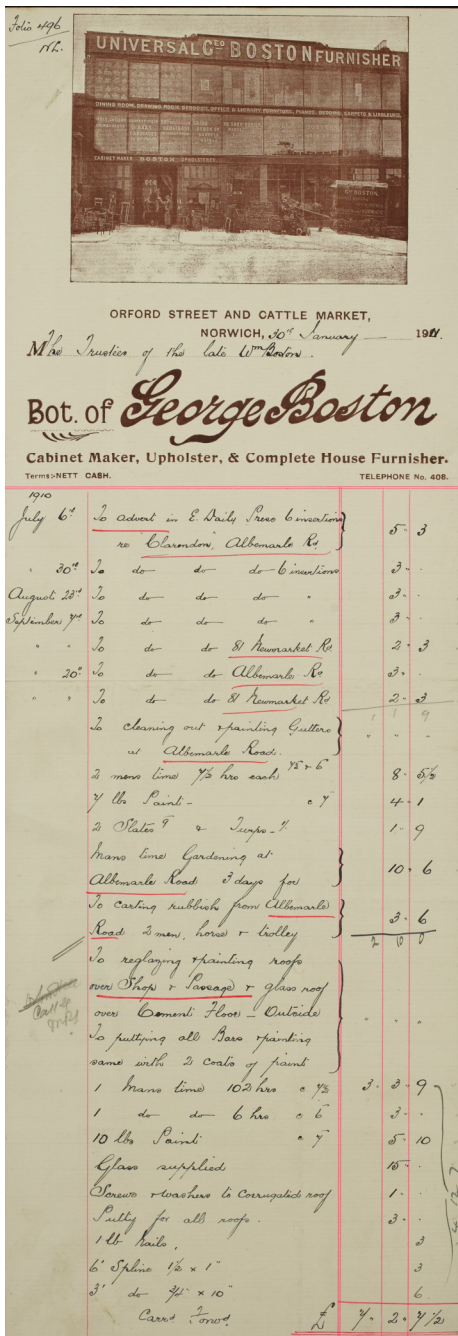 Folio 496
UNIVERSAL GEO BOSTON FURNISHER
DINING ROOM, DRAWING ROOM, BEDROOM, OFFICE & LIBRARY FURNITURE, PIANOS, BEDDING, CARPETS & LINOLEUMS.
CABINET MAKER BOSTON UPHOLSTERER
ORFORD STREET AND CATTLE MARKET,
NORWICH, 30th January 1911.
M The Trustees of the late Wm Boston.
Bot. of George Boston
Cabinet Maker, Upholster, & Complete House Furnisher.
Terms:-NETT CASH. TELEPHONE No. 408.
1910
July 6th To advert in E. Daily Press 6 insertions
re "Clarendon", Albemarle Rd 5 - 3
" 30th To do do do 6 insertions 3 -
August 23rd To do do do " 3 -
September 7th To do do do " 3 -
" " To do do 81 Newmarket Rd 2 - 3
" 20th To do do Albemarle Rd 3 -
" " To do do 81 Newmarket Rd 2 - 3
1 1 9
To cleaning out & painting Gutters
at Albemarle Road. " " "
2 mens time 7½ hrs each 7½ & 6 8 - 5½
7 lbs Paint - c 7 4 - 1
2 Slates 9 & Turps - 1 - 9
Mans time Gardening at
Albemarle Road 3 days for 10 - 6
To carting rubbish from Albemarle
Road 2 men, horse & trolley 3 - 6
2 10 0
To reglazing & painting roofs
over Shop & Passage & glass roof
over Cement Floor - Outside
To puttying all Bars & painting
same with 2 coats of paint
1 Mans time 102 hrs c 7½ 3 - 3 - 9
1 do do 6 hrs c 6 3 -
10 lbs Paint c 7 5 - 10
Glass supplied 15 -
Screws & washers to Corrugated roof 1 -
Putty for all roofs. 3 -
1 lb Nails, 3
6' Spline 1½ x 1" 3
3' do ¾" x 10" 6
Carrd Forwd. £ 7 - 2 - 7½